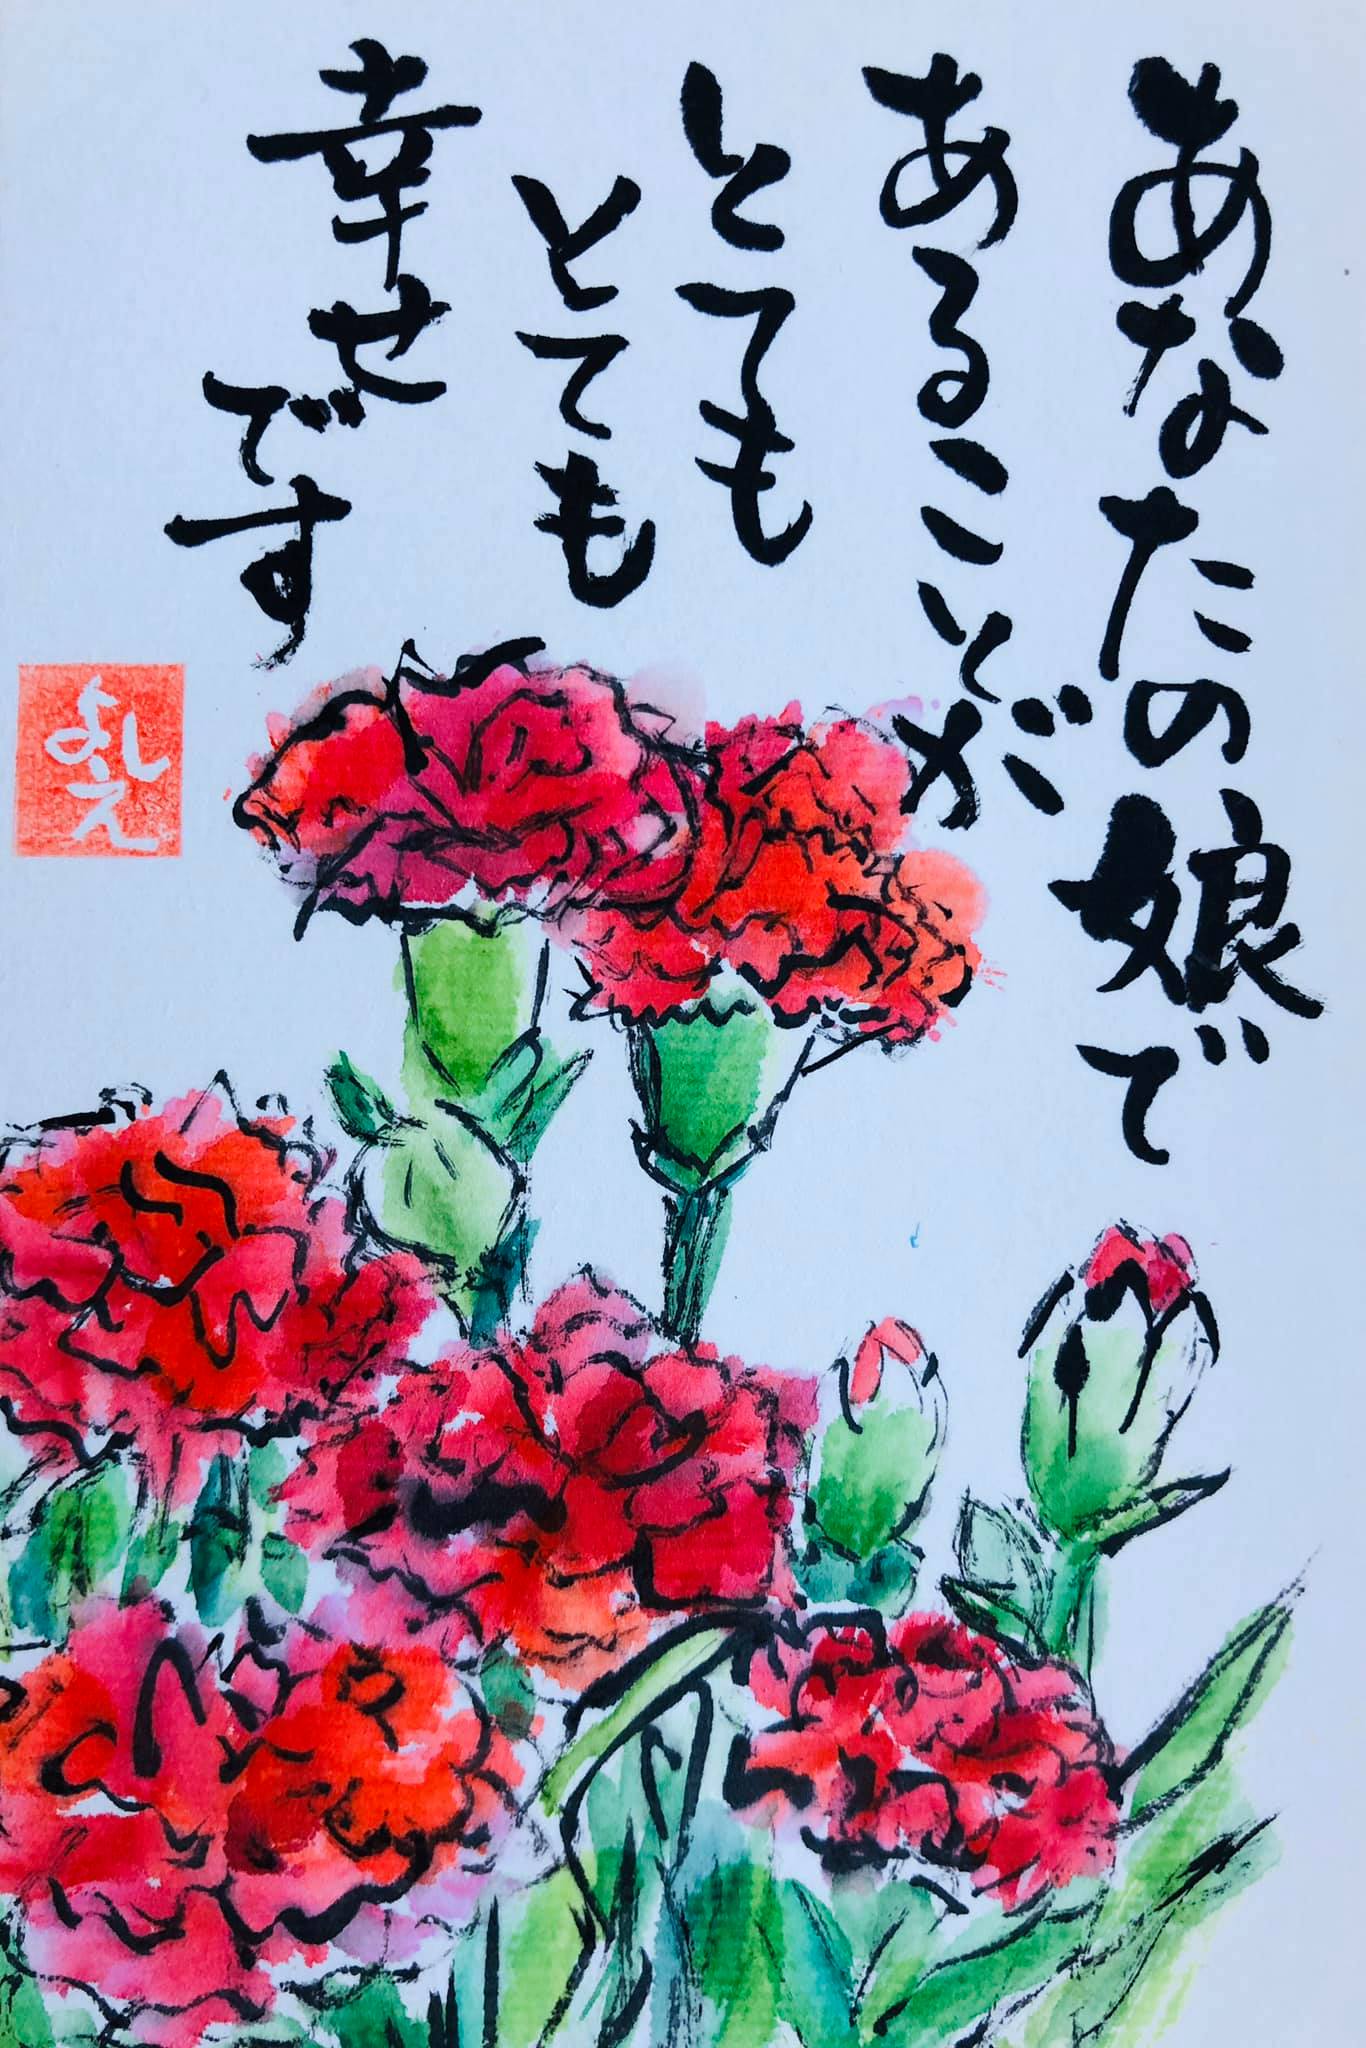 あなたの娘で
あることが
とても
とても
幸せ
です
よしえ